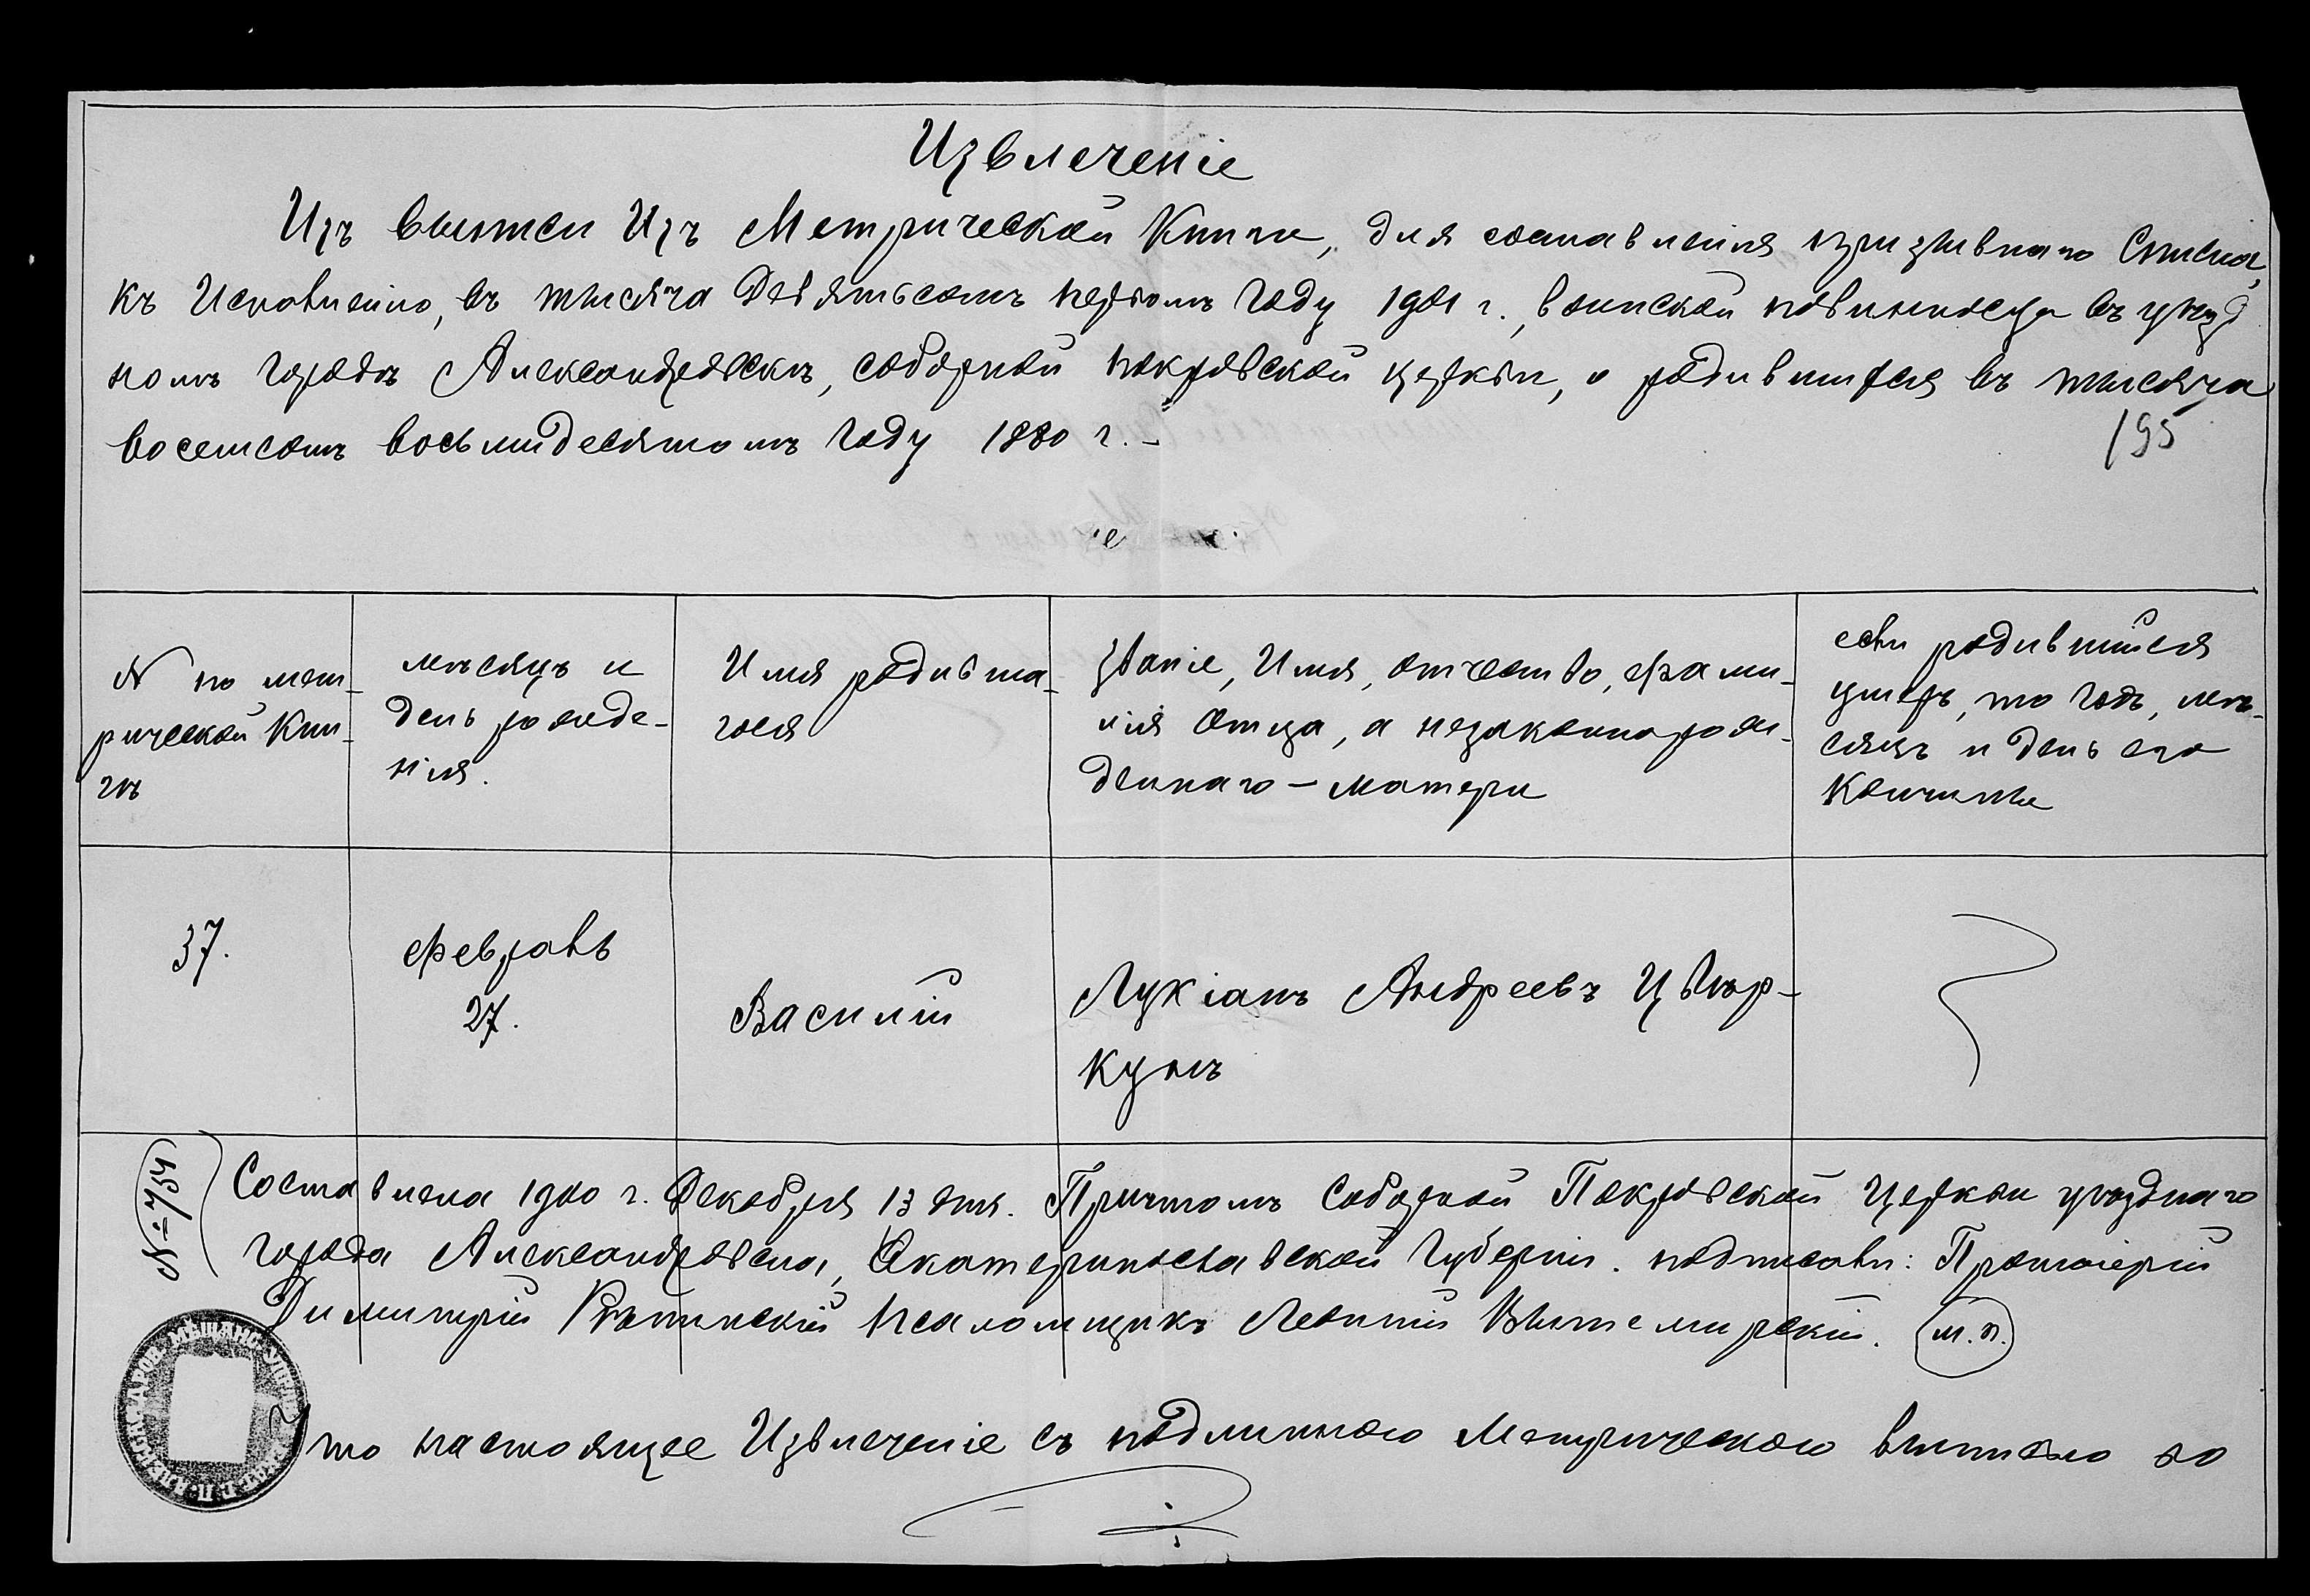 Извлеченіе
Изъ выписи Изъ Метрической Книги, для составленія призывнаго Списка,
къ Исполненію, въ тысяча Девятьсотъ первомъ году 1901 г., воинской повинности въ уѣзд
номъ городѣ Александровскѣ, соборной покровской церкви, о родившихся въ тысяча
восемсотъ восьмидесятомъ году 1880 г. –
195
N по мет-
рической Кни-
гѣ
мѣсяцъ и
день рожде-
нія.
Имя родивша-
гося
Званіе, Имя, отчество, фами-
лія отца, а незаконнорож-
деннаго – матери
если родившійся
умеръ, то годъ, мѣ-
сяцъ и день его
кончины
37.
Февраль
27.
Василій
Лукіанъ Андреевъ Цвѣр-
кунъ
N = 754
Составлена 1900 г. Декабря 13 дня. Причтомъ Соборной Покровской Церкви уѣзднаго
города Александровска, Екатеринославской Губерніи. подписали: Протоіерей
Димитрій Рѣпинскій Псаломщикъ Леонтій Вытемирскій. м.п.
Что настоящее Извлеченіе съ подлинною Метрическою выписью со